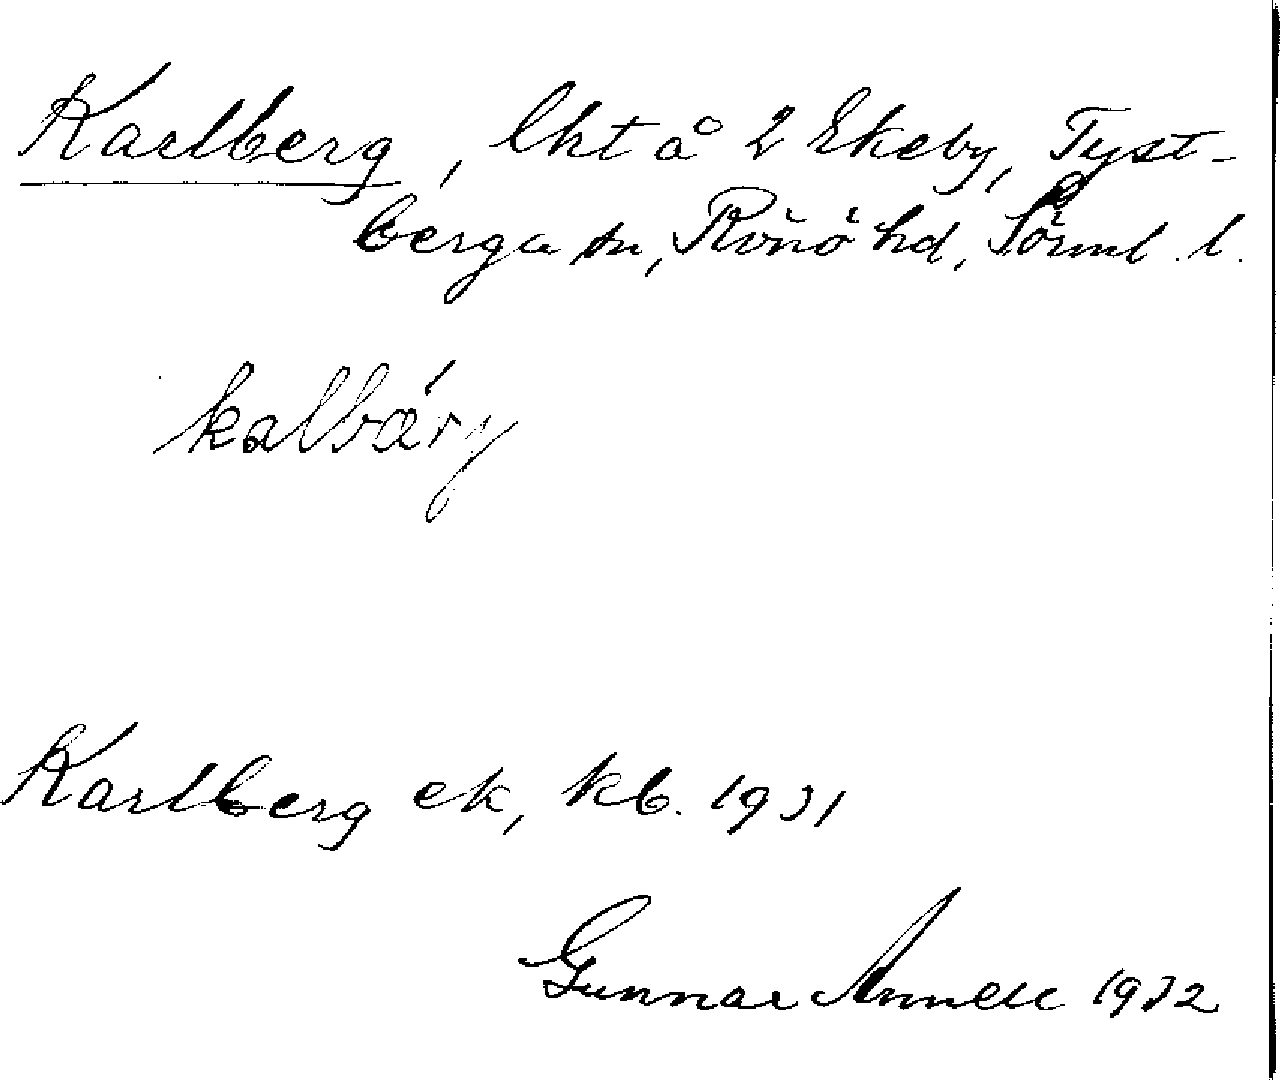 Karlberg, lht å 2 Ekeby, Tyst-
berga sn, Rönö hd, Sörml. l.
kalbǽrj
Karlberg ek, kb. 1931
Gunnar Annell 1932